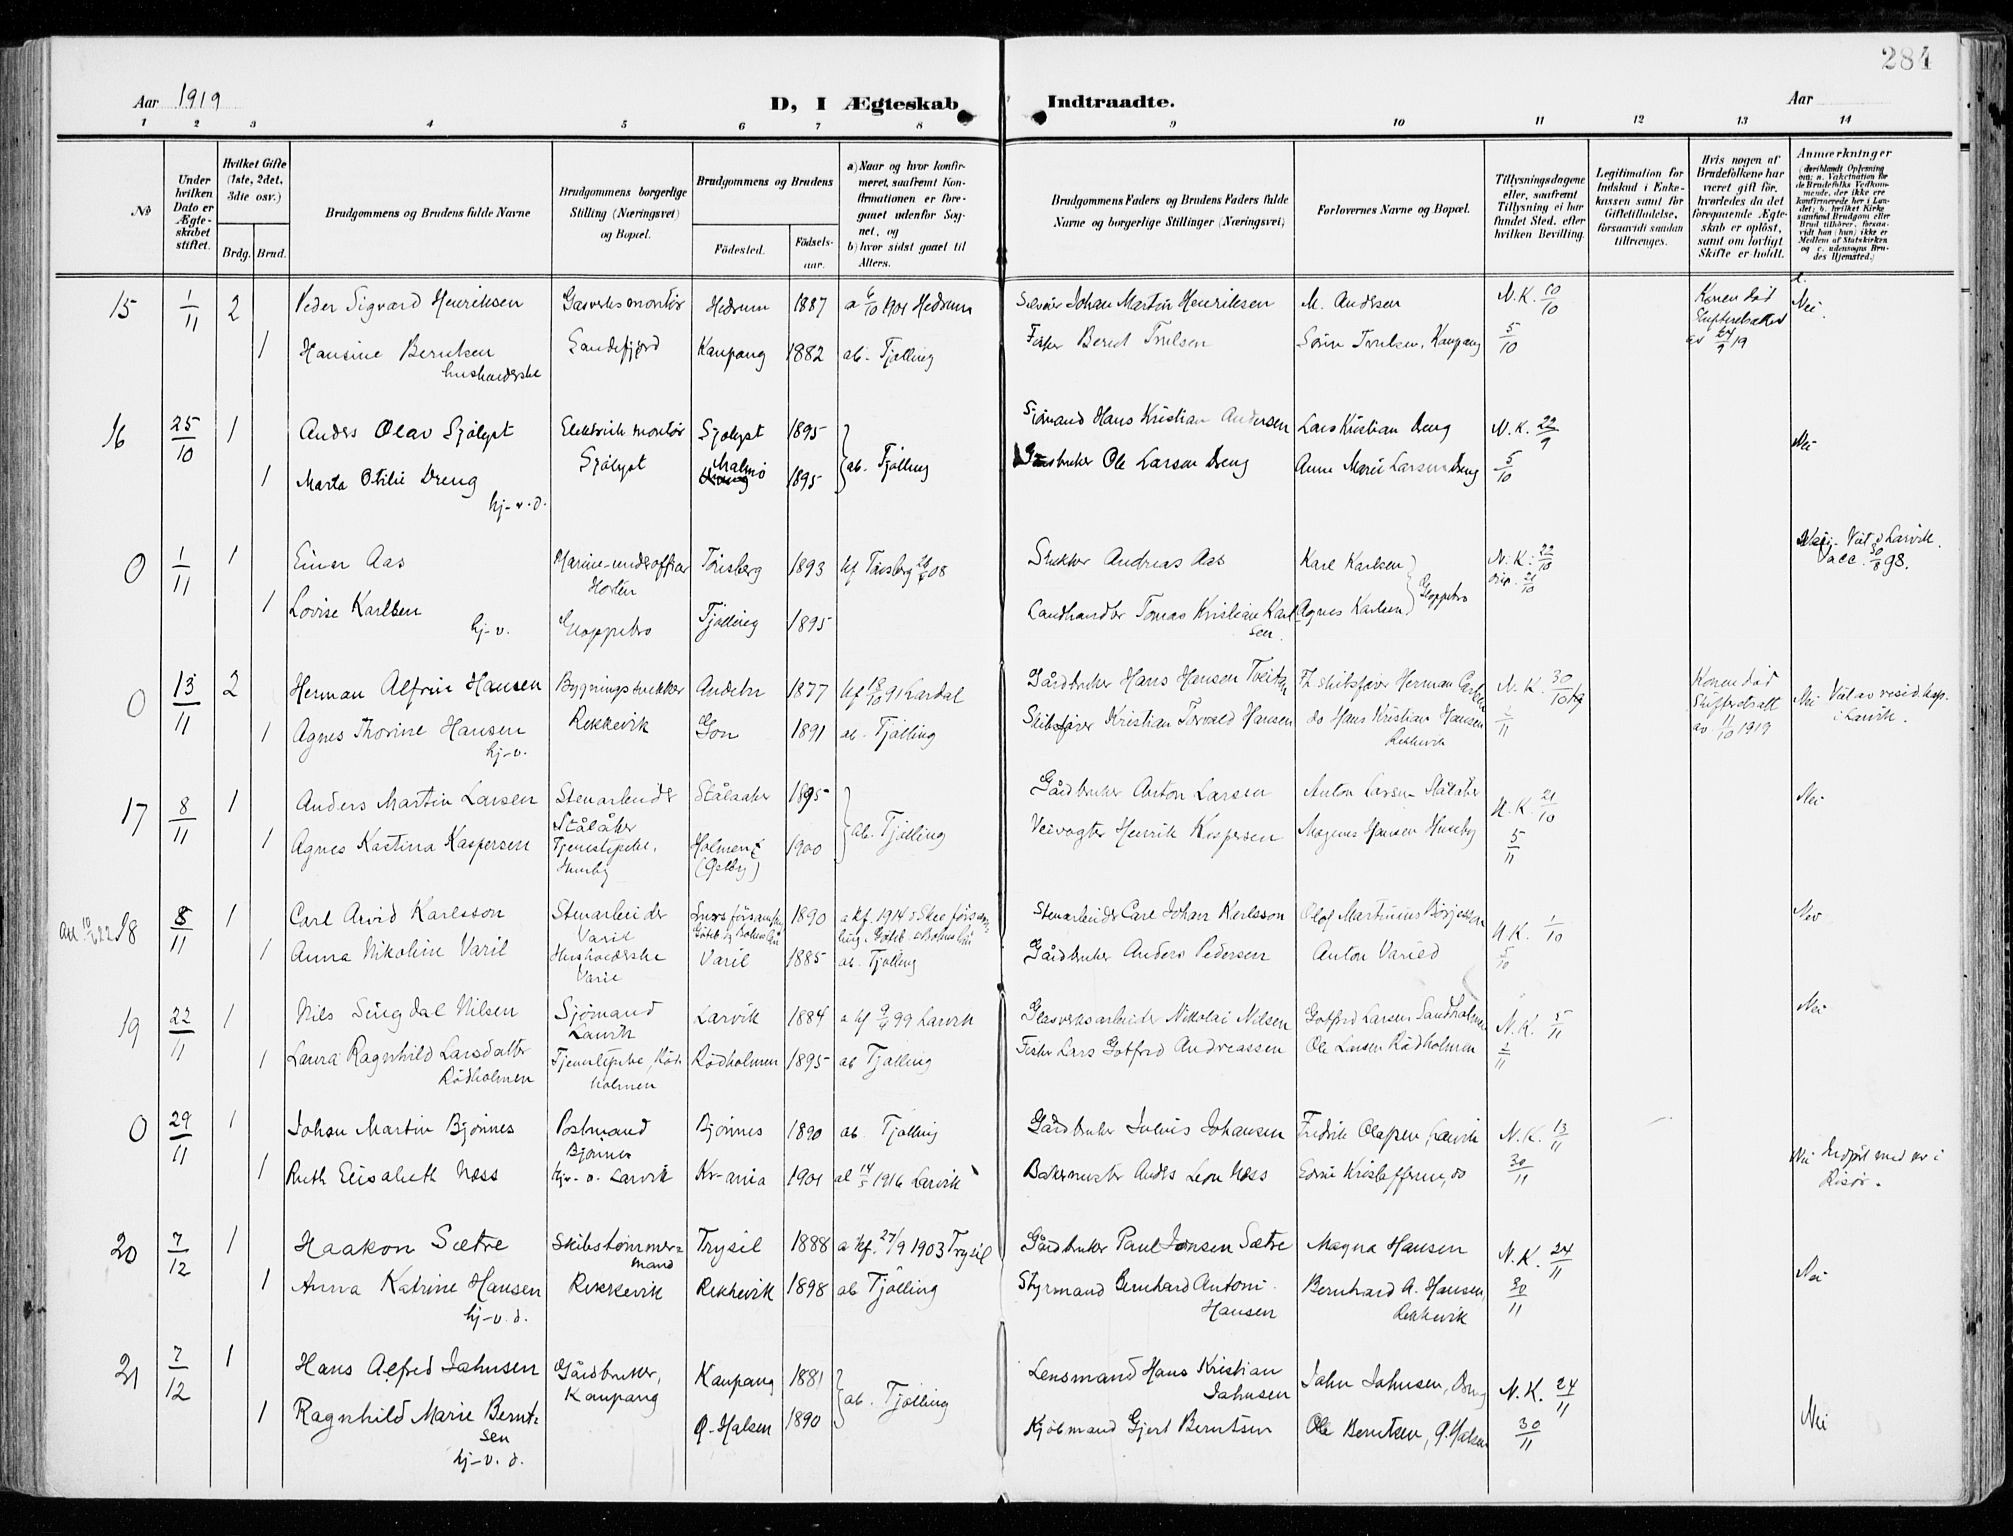 284
Aar 1919
D, I Ægteskab Indtraadte.
Aar
1 2 3 4 5 6 7 8 9 10 11 12 13 14
No
Under hvilken Dato er Ægteskabet stiftet.
Hvilket Gifte (1ste, 2det, 3die osv.)
Brdg. Brud.
Brudgommens og Brudens fulde Navne
Brudgommens borgerlige Stilling (Næringsvei) og Bopæl.
Brudgommens og Brudens
Fødested. Fødselsaar.
a) Naar og hvor konfirmeret, saafremt Konfirmationen er foregaaet udenfor Sognet, og
b) hvor sidst gaaet til Alters.
Brudgommens Faders og Brudens Faders fulde Navne og borgerlige Stillinger (Næringsvei)
Forlovernes Navne og Bopæl.
Tillysningsdagene eller, saafremt Tillysning ei har fundet Sted, efter hvilken Bevilling.
Legitimation for Indskud i Enkekassen samt for Giftetilladelse, forsaavidt saadan tiltrænges.
Hvis nogen af Brudefolkene har været gift før, hvorledes da det foregaaende Ægteskab er opløst, samt om lovligt Skifte er holdt.
Anmærkninger
15 1/11 2 Peder Sigvard Henriksen Gasverksmontør Hedrum 1887 a 6/10 1901 Hedrum Johan Martin Henriksen M. Andersen N.K. 10/10 Konen død Nei.
1 Hansine Berntsen Sandefjord Kaupang 1882 ab. Tjølling Fisker Berent Trulsen Sørin Trulsen, Kaupang 5/10 Skifteretsattest av 24/9 19
husholderske
16 25/10 1 Anders Olav Sjølyst Elektrisk montør Sjølyst 1895 ab. Tjølling Sjømand Hans Kristian Andersen Lars Kristian Dreng N.K. 22/9 Nei
1 Marta Otilie Dreng Sjølyst Malmø 1895 Ole Larsen Dreng Anne Marie Larsen Dreng 5/10
hj-v.d.
0 1/11 1 Einar Aas Marine-underoffiser Tønsberg 1893 kf Tønsberg 08 Andreas Aas Karl Karlsen N.K. 22/10 Larvik.
Horten Vacc. 98.
1 Lovise Karlsen Gloppebro Tjølling 1895 Landhandler Tomas Kristian Karlsen Agnes Karlsen Gloppebro
hj-v.
0 13/11 2 Herman Alfrin Hansen Bygningssnekker Andebu 1877 kf 18/10 91 Lardal Gårdbruker Hans Hansen Fh skibsfører Herman N.K. 30/10 Konen død Nei
1 Agnes Thorine Hansen Rekkevik Gon 1891 ab. Tjølling Skibsfører Kristian Torvald Hansen do Hans Kristian Hansen Rekkevik 1/11 Skifteretsatt av 11/10 1919 i Larvik.
hj-v.
17 8/11 1 Anders Martin Larsen Stenarbeider Stålaaker 1895 ab. Tjølling Gårdbruker Anton Larsen Anton Larsen Stålaker N.K. 21/10 Nei
Stålåker
1 Agnes Kastina Kaspersen Tjenestepike, Huseby Holmen (Østby) 1900 Veivogter Henrik Kaspersen Magnus Hansen Huseby 5/11
18 8/11 1 Carl Arvid Karlsson Stenarbeider Varil 1890 a kf. 1914 Stenarbeider Carl Johan Karlsson Olof Martinius Börjesson N.K. 1/10 Nei
1 Anna Nikoline Varil Husholderske Varil Varil 1885 ab. Tjølling Gårdbruker Anders Pedersen Anton Varild 5/10
19 22/11 1 Nils Singdal Nilsen Sjømand Larvik Larvik 1884 a kf 99 Larvik Glasverksarbeider Nikolai Nilsen Gotfred Larsen Sandholmen N.K. 5/11 Nei
1 Laura Ragnhild Larsdatter Rødholmen Tjenestepike, Rødholmen Rødholmen 1895 ab Tjølling Fisker Lars Gotfred Andreassen Ole Larsen Rødholmen 2/11
0 29/11 1 Johan Martin Bjønnes Postmand Bjønnes Bjønnes 1890 ab. Tjølling Gårdbruker Julius Johansen Fredrik Olafsen, Larvik N.K. 13/11
1 Ruth Elisabeth Næss hjv-v. Larvik Kr-ania 1901 1916 Larvik Bakermester Anders Leon Næss Kristoffersen, do 30/11 Nei Risør.
20 7/12 1 Haakon Sætre Skibstømmermand Trysil 1888 a kf. 27/9 1903 Trysil Gårdbruker Paul Jonsen Sætre Magna Hansen N.K. 24/11
1 Anna Katrine Hansen Rekkevik Rekkevik 1898 ab Tjølling Styrmand Bernhard Antoni Hansen Bernhard A. Hansen, Rekkevik 30/11 Nei
hj-v.d.
21 7/12 1 Hans Alfred Jahnsen Gårdbruker, Kaupang Kaupang 1881 ab. Tjølling Lensmand Hans Kristian Jahnsen Jahn Jahnsen, N.K. 24/11
1 Ragnhild Marie Berntsen Ø-Halsen 1890 Kjøbmand Gjert Berntsen Ole Berntsen, Ø. Halsen 30/11 Nei
hj-v.d.